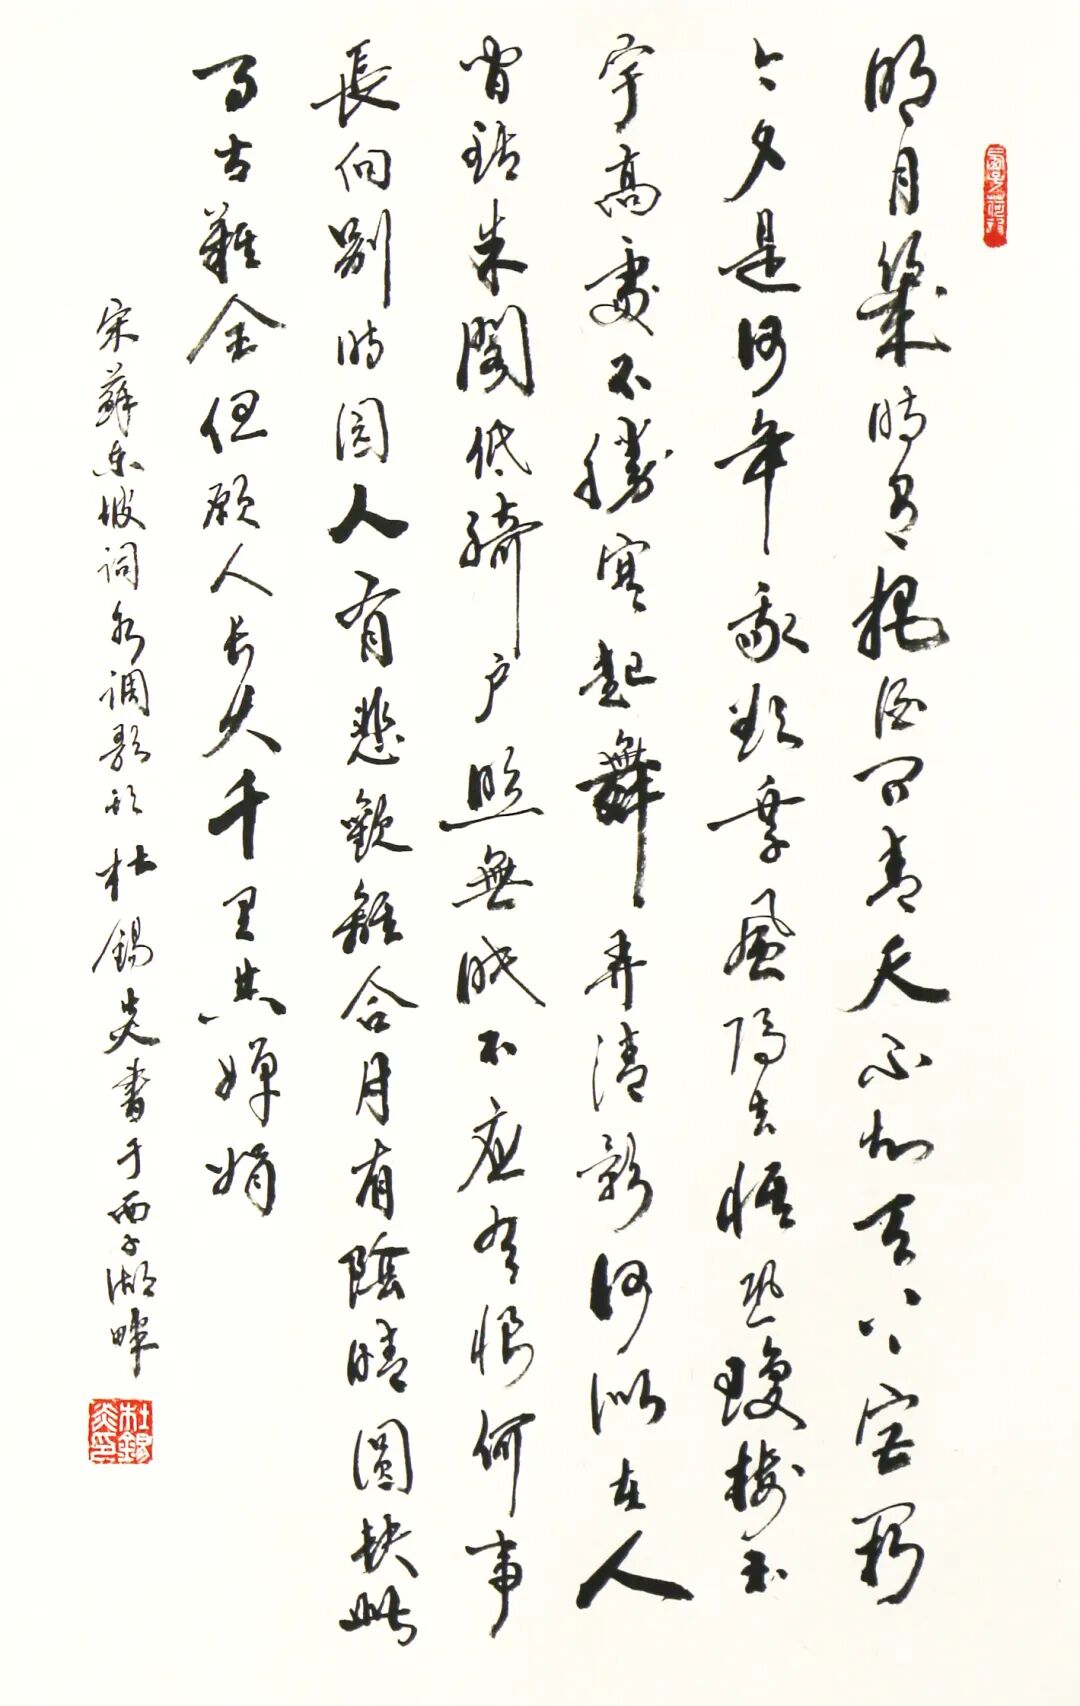 明月幾時有把酒問青天不知天上宮闕
今夕是何年我欲乘風歸去惟恐瓊樓玉
宇高處不勝寒起舞弄清影何似在人
間轉朱閣低綺户照無眠不應有恨何事
長向別時圓人有悲歡離合月有陰晴圓缺此
事古難全但願人長久千里共嬋娟
宋蘇東坡詞水調歌頭杜錫炎書于西子湖畔
杜錫炎印